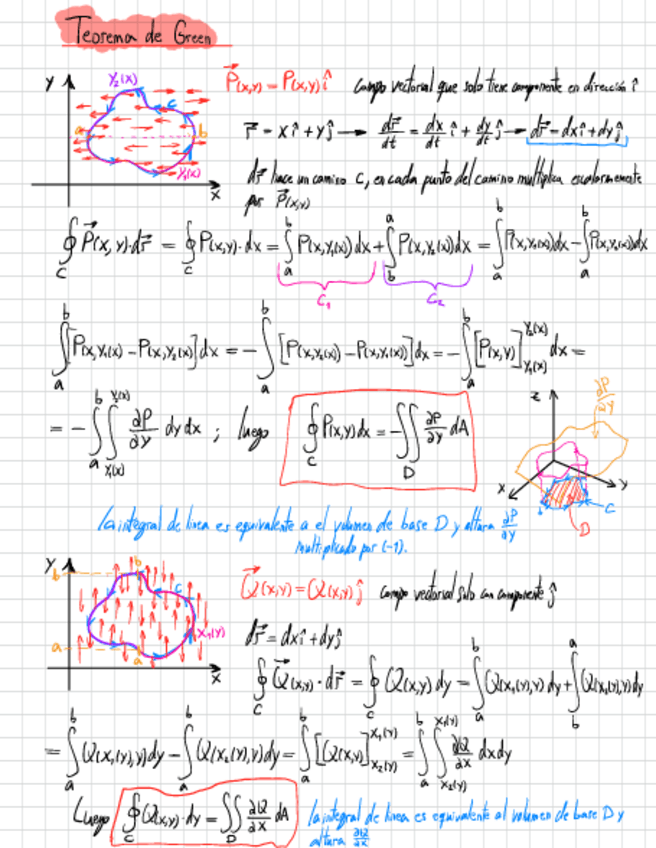 Teorema de Green
y
Y₂(x)
C
a
b
Y₁(x)
x
P⃗(x,y) = P(x,y) î campo vectorial que solo tiene componente en dirección î
r⃗ = x î + y ĵ → dr⃗/dt = dx/dt î + dy/dt ĵ → dr⃗ = dx î + dy ĵ
dr⃗ hace un camino C, en cada punto del camino multiplica escalarmente
por P⃗(x,y)
∮_C P⃗(x,y)·dr⃗ = ∮_C P(x,y)·dx = ∫_a^b P(x,Y₁(x))dx + ∫_b^a P(x,Y₂(x))dx = ∫_a^b P(x,Y₁(x))dx − ∫_a^b P(x,Y₂(x))dx
C₁ C₂
∫_a^b [P(x,Y₁(x)) − P(x,Y₂(x))]dx = −∫_a^b [P(x,Y₂(x)) − P(x,Y₁(x))]dx = −∫_a^b [P(x,y)]_{Y₁(x)}^{Y₂(x)} dx =
= −∫_a^b ∫_{Y₁(x)}^{Y₂(x)} ∂P/∂y dy dx ; luego ∮_C P(x,y)dx = −∬_D ∂P/∂y dA
z
∂P/∂y
x
y
C
D
la integral de linea es equivalente a el volumen de base D y altura ∂P/∂y
multiplicado por (-1).
y
b
b
C
X₁(y)
a
a
x
Q⃗(x,y) = Q(x,y) ĵ campo vectorial solo con componente ĵ
dr⃗ = dx î + dy ĵ
∮_C Q⃗(x,y)·dr⃗ = ∮_C Q(x,y)dy = ∫_a^b Q(x₁(y),y)dy + ∫_b^a Q(x₂(y),y)dy
= ∫_a^b Q(x₁(y),y)dy − ∫_a^b Q(x₂(y),y)dy = ∫_a^b [Q(x,y)]_{x₂(y)}^{x₁(y)} = ∫_a^b ∫_{x₂(y)}^{x₁(y)} ∂Q/∂x dx dy
Luego ∮_C Q(x,y)·dy = ∬_D ∂Q/∂x dA la integral de linea es equivalente al volumen de base D y
altura ∂Q/∂x